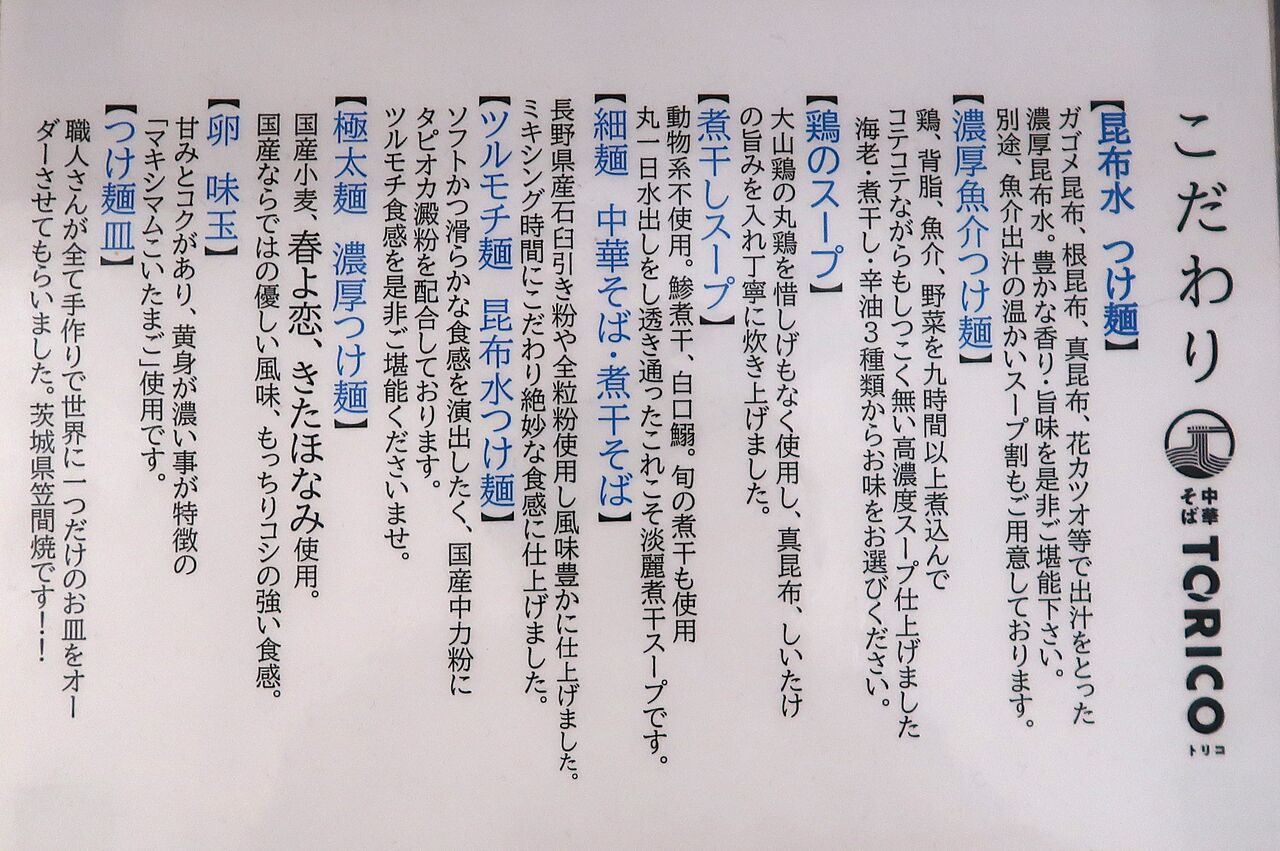 こだわり
中華そば TORICO トリコ
【昆布水 つけ麺】
ガゴメ昆布、根昆布、真昆布、花カツオ等で出汁をとった
濃厚昆布水。豊かな香り・旨味を是非ご堪能下さい。
別途、魚介出汁の温かいスープ割もご用意しております。
【濃厚魚介つけ麺】
鶏、背脂、魚介、野菜を九時間以上煮込んで
コテコテながらもしつこく無い高濃度スープ仕上げました
海老・煮干し・辛油3種類からお味をお選びください。
【鶏のスープ】
大山鶏の丸鶏を惜しげもなく使用し、真昆布、しいたけ
の旨みを入れ丁寧に炊き上げました。
【煮干しスープ】
動物系不使用。鯵煮干、白口鰯。旬の煮干も使用
丸一日水出しをし透き通ったこれこそ淡麗煮干スープです。
【細麺 中華そば・煮干そば】
長野県産石臼引き粉や全粒粉使用し風味豊かに仕上げました。
ミキシング時間にこだわり絶妙な食感に仕上げました。
【ツルモチ麺 昆布水つけ麺】
ソフトかつ滑らかな食感を演出したく、国産中力粉に
タピオカ澱粉を配合しております。
ツルモチ食感を是非ご堪能くださいませ。
【極太麺 濃厚つけ麺】
国産小麦、春よ恋、きたほなみ使用。
国産ならではの優しい風味、もっちりコシの強い食感。
【卵 味玉】
甘みとコクがあり、黄身が濃い事が特徴の
「マキシマムこいたまご」使用です。
【つけ麺皿】
職人さんが全て手作りで世界に一つだけのお皿をオー
ダーさせてもらいました。茨城県笠間焼です！！